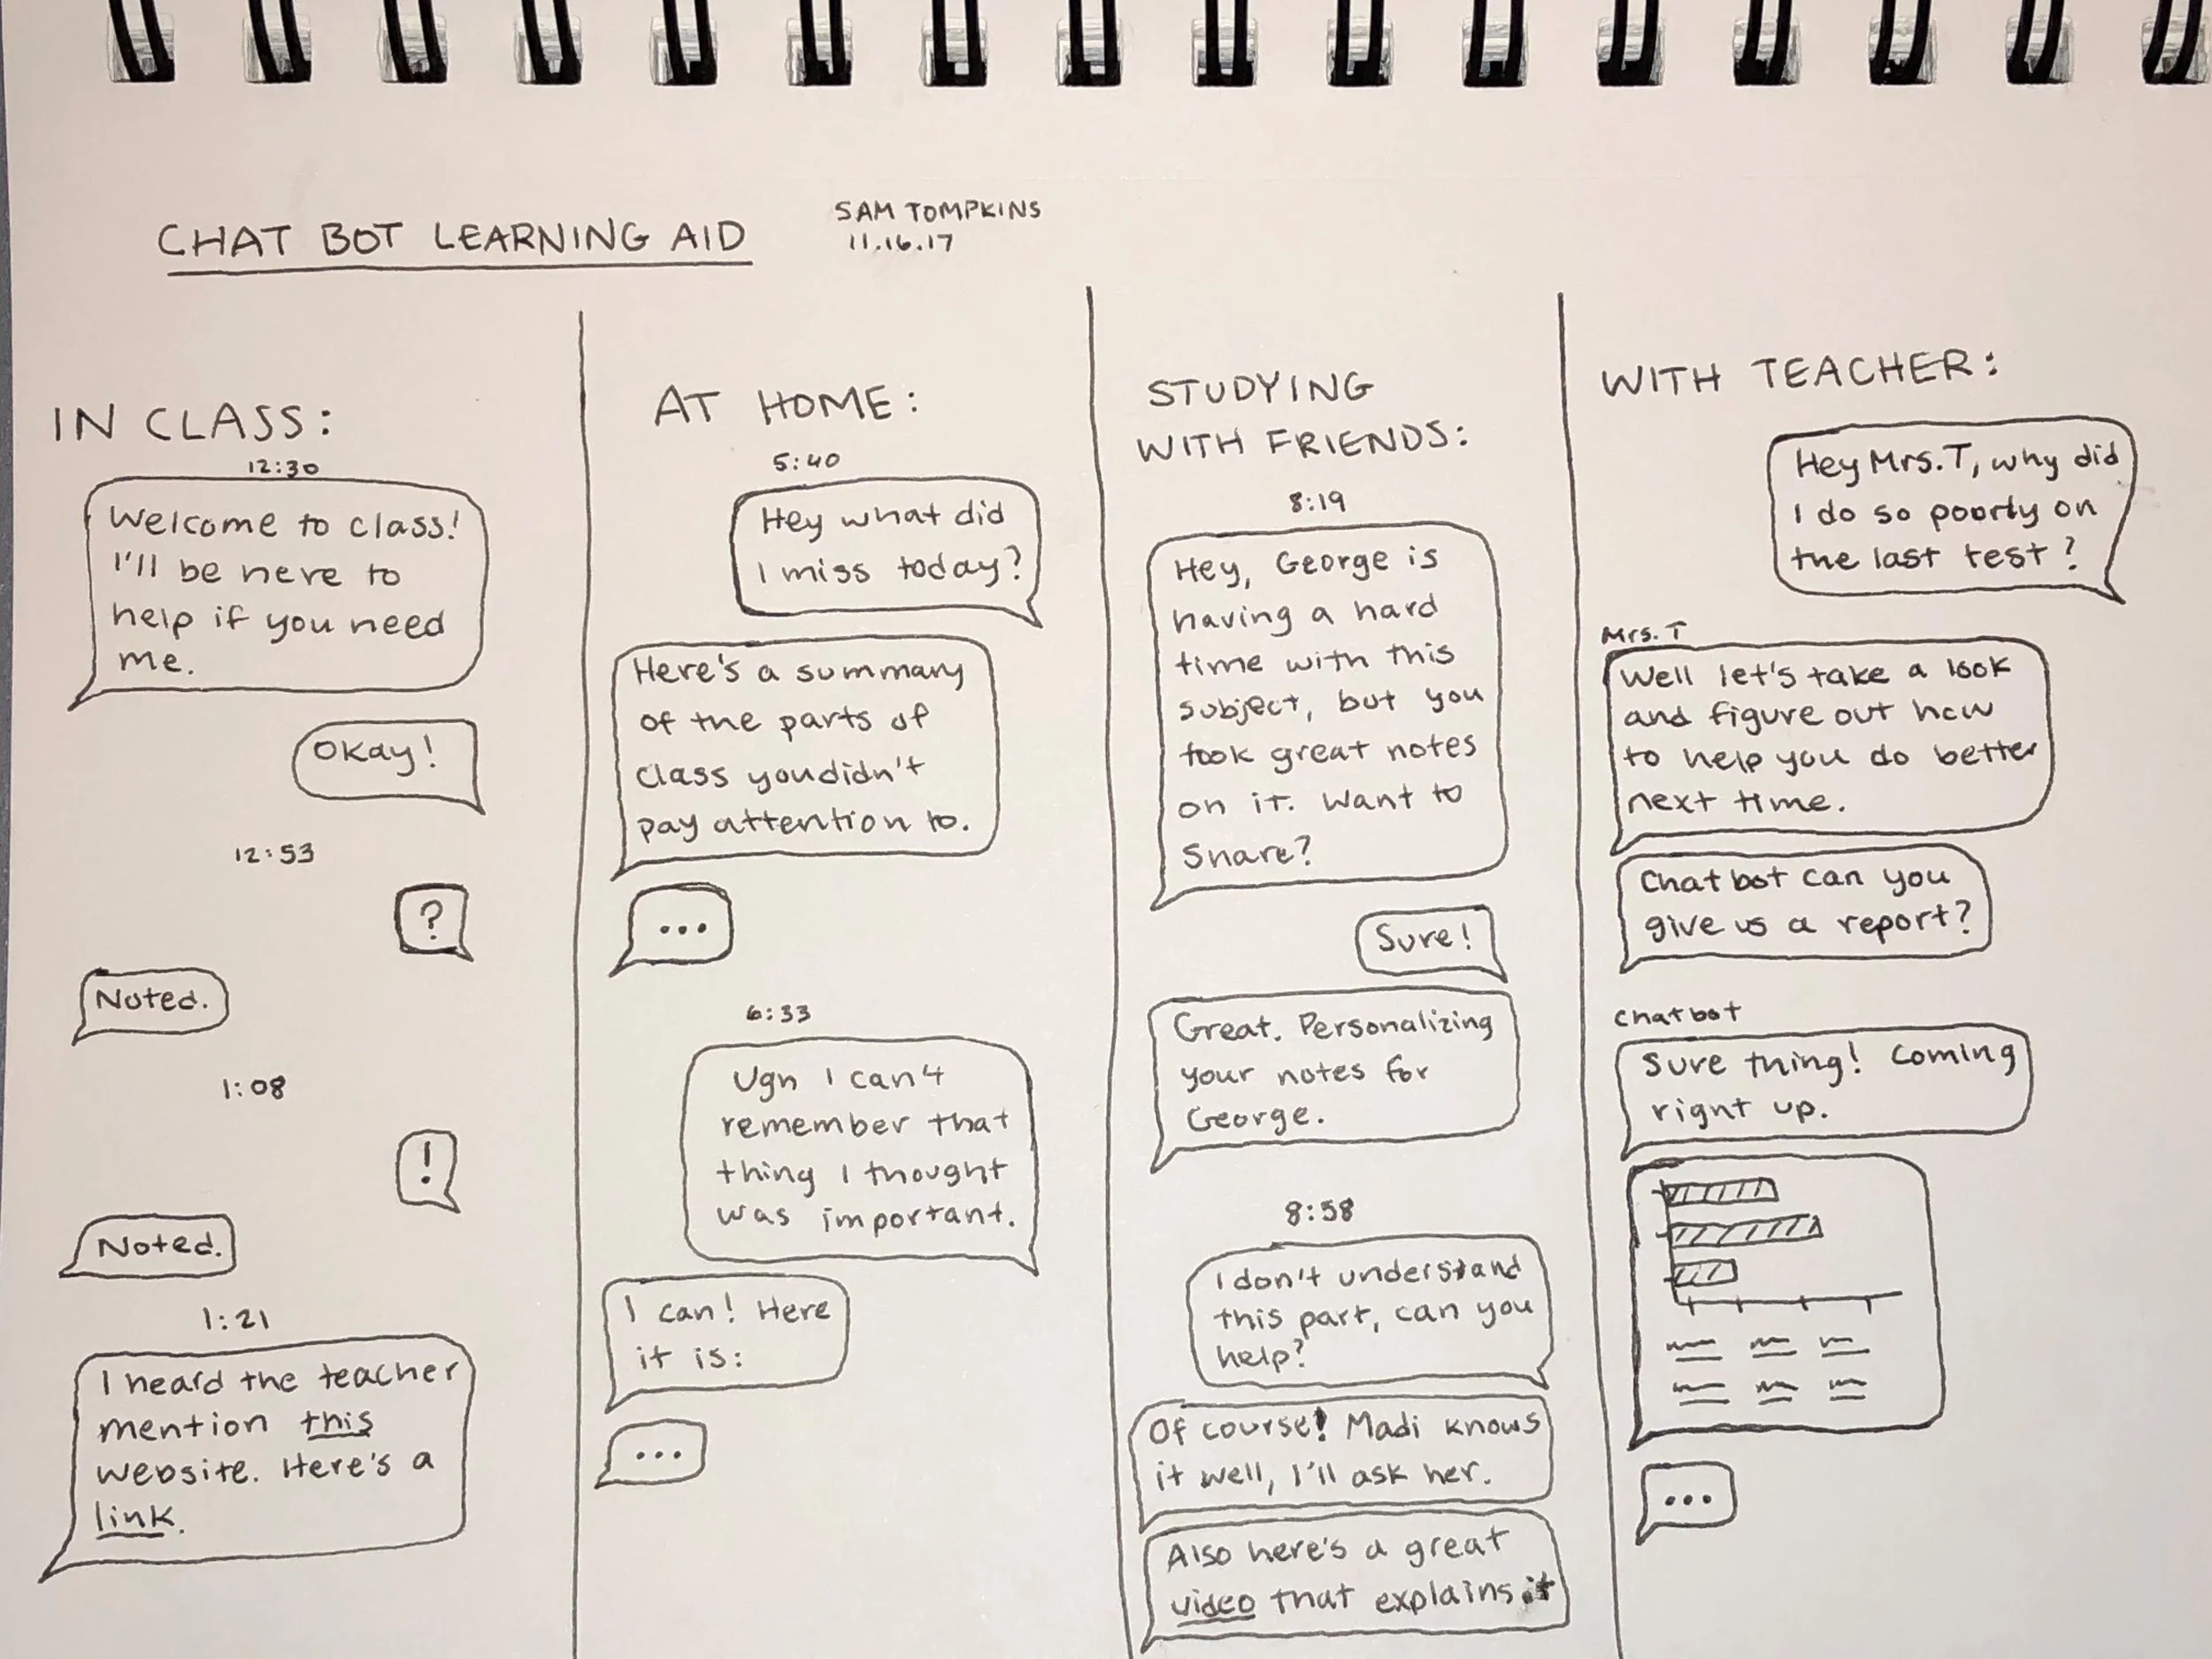 CHAT BOT LEARNING AID
SAM TOMPKINS
11.16.17
IN CLASS:
12:30
Welcome to class!
I'll be here to
help if you need
me.
Okay!
12:53
?
Noted.
1:08
!
Noted.
1:21
I heard the teacher
mention this
website. Here's a
link.
AT HOME:
5:40
Hey what did
I miss today?
Here's a summary
of the parts of
class you didn't
pay attention to.
...
6:33
Ugh I can't
remember that
thing I thought
was important.
I can! Here
it is:
...
STUDYING
WITH FRIENDS:
8:19
Hey, George is
having a hard
time with this
subject, but you
took great notes
on it. Want to
Share?
Sure!
Great. Personalizing
your notes for
George.
8:58
I don't understand
this part, can you
help?
Of course! Madi knows
it well, I'll ask her.
Also here's a great
video that explains it
WITH TEACHER:
Hey Mrs. T, why did
I do so poorly on
the last test?
Mrs. T
Well let's take a look
and figure out how
to help you do better
next time.
Chat bot can you
give us a report?
Chatbot
Sure thing! Coming
right up.
...